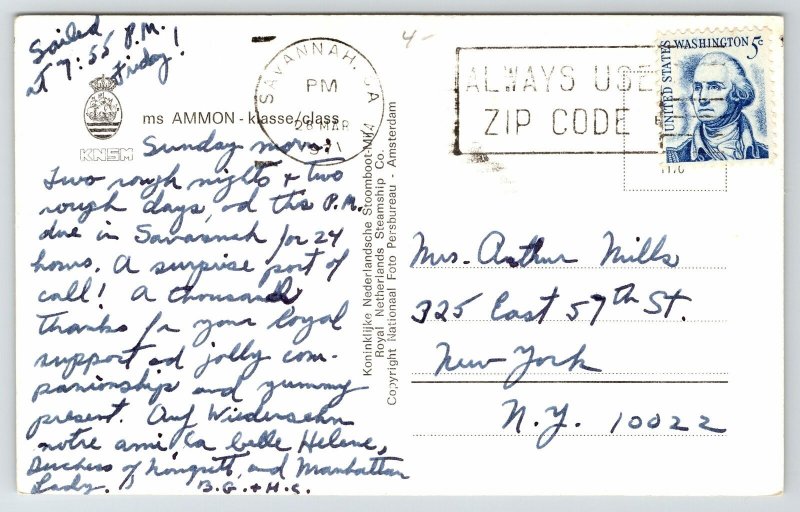 Sailed
at 7:55 P.M.
Friday!
KNSM
ms AMMON - klasse/class
Sunday morn:
Two rough nights + two
rough days, and this P.M.
due in Savannah for 24
hours. A surprise port of
call! A thousand
thanks for your loyal
support and jolly com-
panionship and yummy
present. Auf Wiedersehn
notre ami, la belle Helene,
Duchess of and Manhattan
Lady.
B.G. + H.G.
Koninklijke Nederlandsche Stoomboot-Mij
Royal Netherlands Steamship Co.
Copyright Nationaal Foto Persbureau - Amsterdam
SAVANNAH, GA
PM
28 MAR
4-
ALWAYS USE
ZIP CODE
UNITED STATES
WASHINGTON 5c
Mrs. Arthur Mills
325 East 57th St.
New York
N.Y. 10022